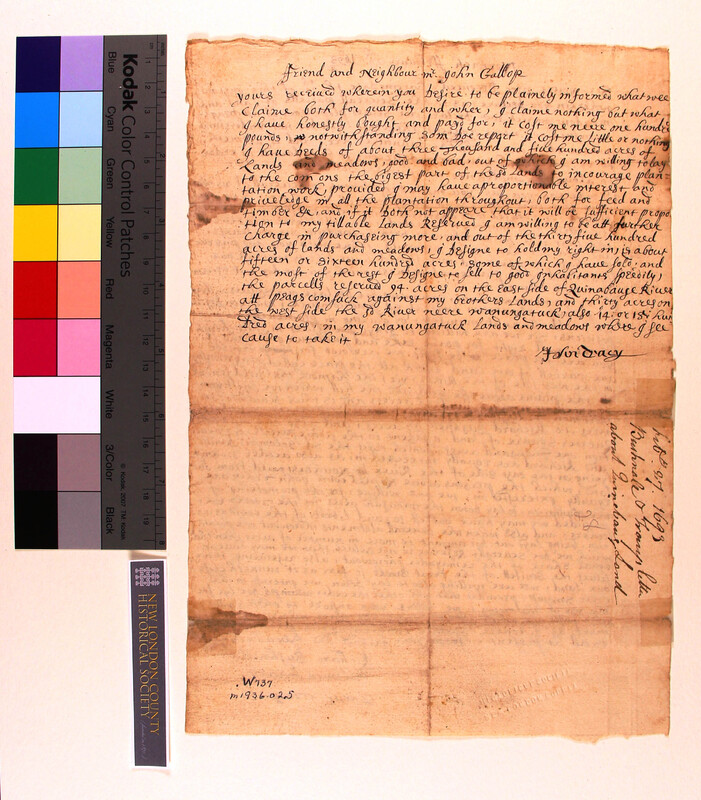 friend and Neighbour mr John Gallop
yours received wherein you desire to be plainely informed what wee
Claime both for quantity and wher, I claime nothing but what
I have honestly bought and payd for, it cost me neere one hundred
pounds, notwithstanding som doe report it cost me little or nothing
I have deeds of about three Thousand and five hundred acres of
Lands and meadows, good and bad, out of which I am willing to lay
to the comons the bigest part of the sd Lands to incourage plan-
tation work, provided I may have a proportionable interest and
priveledge in all the plantation throughout, both for feed and
timber &c, and if it doth not appeare that it will be sufficient propo
tion to my tillable Lands Reserved I am willing to be att further
charge in purchaseing more, and out of the thirty five hundred
acres of lands and meadows, I designe to hold my right in is about
fifteen or sixteen hundred acres, some of which I have sold, and
the most of the rest I designe to sell to good inhabitants speedily,
the parcells reserved 94 acres on the east side of Quinabauge River
att peagscomsuck against my brothers Lands, and thirty acres on
the west side the sd River neere wanungatuck, also 14 or 15 hun
dred acres, in my wanungatuck Lands and meadows where I see
cause to take it
Feb 27. 1693
Bushnale & Tracys letter
about Quinebaug Land
W737
m1936.02.5
Kodak Color Control Patches
Blue
Cyan
Green
Yellow
Red
Magenta
White
3/Color
Black
© Kodak, 2007 TM: Kodak
NEW LONDON COUNTY
HISTORICAL SOCIETY